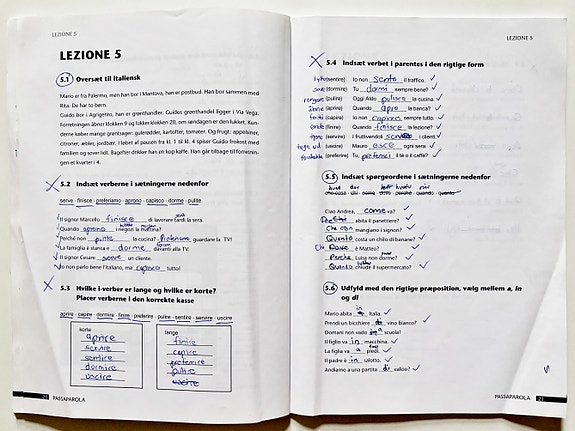 LEZIONE 5
LEZIONE 5
5.1 Oversæt til italiensk
Mario er fra Palermo, men han bor i Mantova, han er postbud. Han bor sammen med
Rita. De har to børn.
Guido bor i Agrigento, han er grønthandler. Guidos grønthandel ligger i Via Vega.
Forretningen åbner klokken 9 og lukker klokken 20, om søndagen er den lukket. Kun-
derne køber mange grøntsager: gulerødder, kartofler, tomater. Og frugt; appelsiner,
citroner, æbler, jordbær. I løbet af pausen fra kl. 1 til kl. 4 spiser Guido frokost med
familien og sover lidt. Bagefter drikker han en kop kaffe. Han går tilbage til forretnin-
gen et kvarter i 4.
5.2 Indsæt verberne i sætningerne nedenfor
serve · finisce · preferiamo · aprono · capisco · dorme · pulite
Il signor Marcello finisce di lavorare tardi la sera.
Quando aprono i negozi la mattina?
Perché non pulite la cucina? Preferiamo guardare la TV!
La famiglia è stanca e dorme davanti alla TV.
Il signor Cesare serve un cliente.
Io non parlo bene l'italiano, ma capisco tutto!
5.3 Hvilke i-verber er lange og hvilke er korte?
Placer verberne i den korrekte kasse
aprire · capire · dormire · finire · preferire · pulire · sentire · servire · uscire
korte
aprire
servire
sentire
dormire
uscire
lange
finire
capire
preferire
pulire
uscire
20 PASSAPAROLA
LEZIONE 5
5.4 Indsæt verbet i parentes i den rigtige form
lytte (sentire) Io non sento il traffico.
sove (dormire) Tu dormi sempre bene?
rengøre (pulire) Oggi Aldo pulisce la cucina.
åbne (aprire) Quando apre la banca?
forstå (capire) Io non capisco sempre tutto.
ende (finire) Quando finisce la lezione?
(servire) I fruttivendoli servono i clienti.
tage ud (uscire) Mauro esce ogni sera.
foretrække (preferire) Tu preferisci il tè o il caffè?
5.5 Indsæt spørgeordene i sætningerne nedenfor
che cosa · chi · come · dove · perché · quando · quanto
Ciao Andrea, come va?
abita il panettiere?
Che cosa mangiano i signori?
Quanto costa un chilo di banane?
Chi è Matteo?
Perché Luisa non dorme?
Quando chiude il supermercato?
5.6 Udfyld med den rigtige præposition, vælg mellem a, in
og di
Mario abita in Italia.
Prendi un bicchiere di vino bianco?
Domani non vado a scuola!
Il figlio va in macchina.
La figlia va a piedi.
Il padre è in salotto.
Andiamo a una partita di calcio?
PASSAPAROLA 21